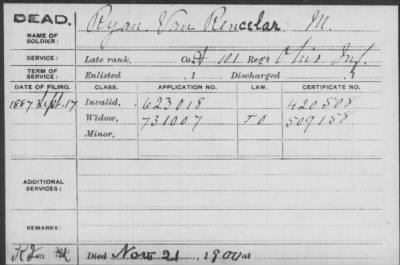 DEAD.
NAME OF SOLDIER:
Ryan Van Rencelar M.
SERVICE:
Late rank, Co. H 101 Reg't Ohio Inf.
TERM OF SERVICE:
Enlisted , 1 Discharged , 1
DATE OF FILING. CLASS. APPLICATION NO. LAW. CERTIFICATE NO.
1887 Sept. 17 Invalid, 623018 420508
Widow, 731007 509158
Minor,
ADDITIONAL SERVICES:
REMARKS:
Died Nov 21, 1900 at